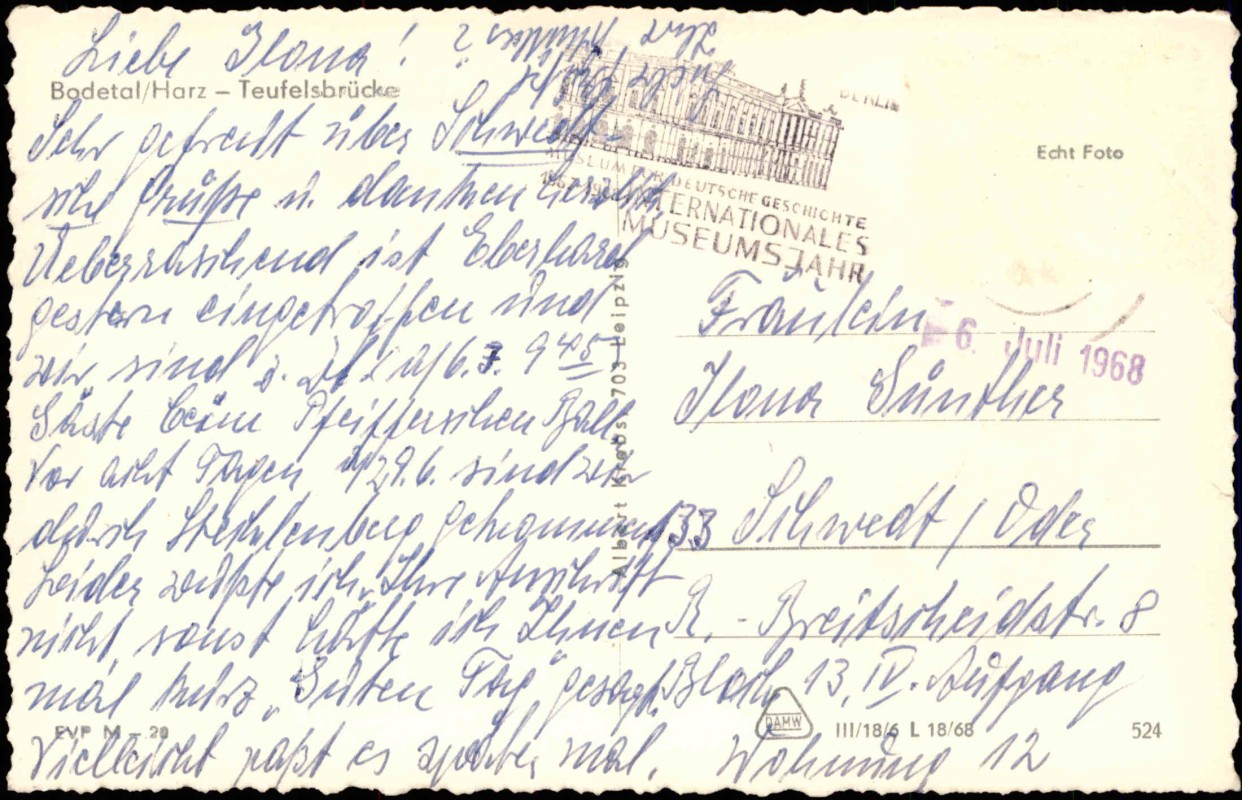 Liebe Ilona!
Bodetal/Harz – Teufelsbrücke
Sehr gefreut über Schwedt-
sche Grüße u. danken herzlich
Ueberraschend ist Eberhard
gestern eingetroffen und
wir sind 6.7. 9
Gäste beim Pfeifferschen Ball
Vor acht Tagen 29.6. sind wir
durch Stecklenberg gekommen
Leider wußte ich Ihre Anschrift
nicht, sonst hätte ich Ihnen
mal kurz „Guten Tag“ gesagt.
Vielleicht paßt es später mal.
EVP M –.20
Albert Krebs 703 Leipzig
BERLIN
MUSEUM FÜR DEUTSCHE GESCHICHTE
INTERNATIONALES
MUSEUMSJAHR
Echt Foto
6. Juli 1968
Fräulein
Ilona Günther
133 Schwedt / Oder
R.-Breitscheidstr. 8
Block 13, IV. Aufgang
Wohnung 12
DAMW
III/18/6 L 18/68
524